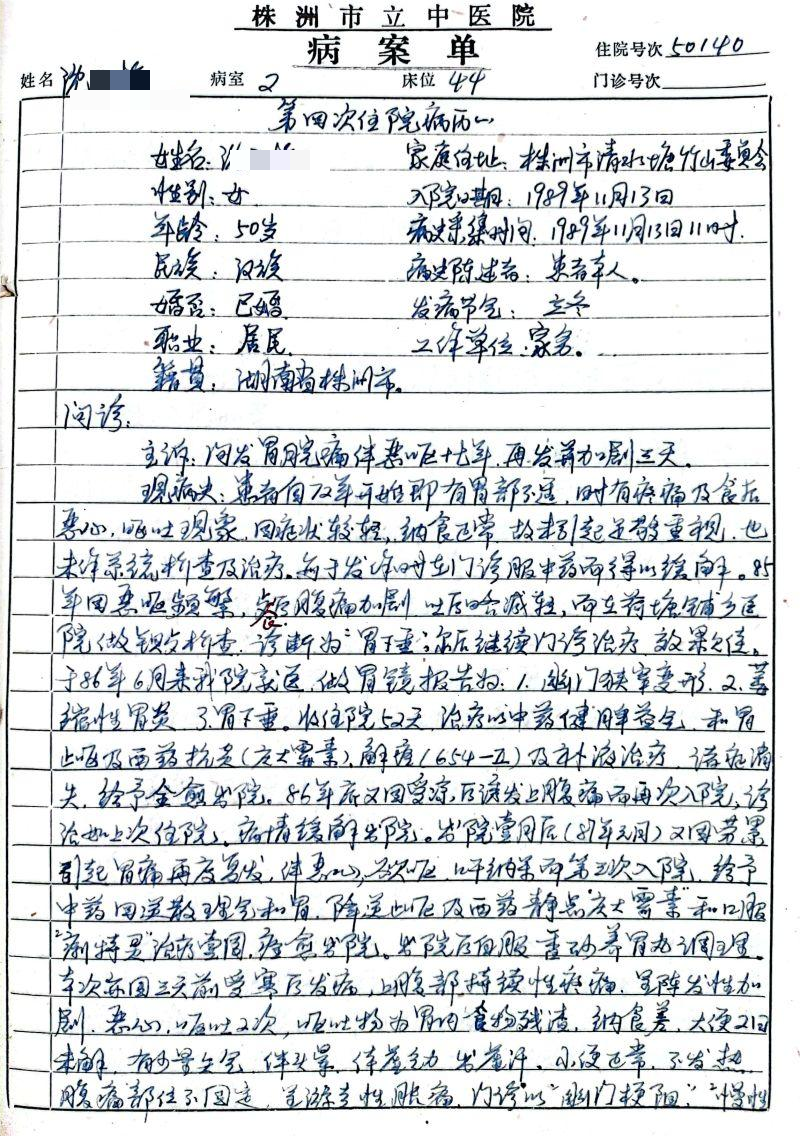 株洲市立中医院
病案单
住院号次 50140
姓名 病室 2 床位 44 门诊号次
第四次住院病历
姓名: 家庭住址: 株洲市清水塘竹山委员会
性别: 女 入院日期: 1989年11月13日
年龄: 50岁 病史采集时间: 1989年11月13日11时.
民族: 汉族 病史陈述者: 患者本人。
婚否: 已婚 发病节气: 立冬
职业: 居民. 工作单位: 家务。
籍贯: 湖南省株洲市。
问诊:
主诉: 间发胃脘痛伴恶呕十七年, 再发并加剧三天。
现病史: 患者自72年开始即有胃部不适, 时有疼痛及食后
恶心, 呕吐现象, 因症状较轻, 纳食正常, 故未引起足够重视, 也
未作系统检查及治疗。每于发作时在门诊服中药而得以缓解。85
年因恶呕频繁, 食后腹痛加剧, 吐后略减轻, 而在荷塘铺乡医
院做钡餐检查, 诊断为"胃下垂", 尔后继续门诊治疗, 效果欠佳。
于86年6月来我院就医, 做胃镜报告为: 1. 幽门狭窄变形, 2. 萎
缩性胃炎 3. 胃下垂。收住院52天, 治疗以中药健脾益气, 和胃
止呕及西药抗炎(庆大霉素), 解痉(654-Ⅱ)及补液治疗, 诸症消
失, 给予全愈出院。86年底又因受凉后诱发上腹痛而再次入院, 诊
治如上次住院, 病情缓解出院。出院壹月后(87年元月)又因劳累
引起胃痛再度复发, 伴恶心, 欲呕, 口干纳呆而第三次入院, 给予
中药四逆散理气和胃, 降逆止呕及西药静点"庆大霉素"和口服
"痢特灵"治疗壹周, 痊愈出院。出院后自服香砂养胃丸调理。
本次亦因三天前受寒后发病, 上腹部持续性疼痛, 呈阵发性加
剧, 恶心, 呕吐2次, 呕吐物为胃内食物残渣, 纳食差, 大便2日
未解, 有少量矢气, 伴头晕, 体差乏力, 出虚汗。小便正常, 不发热
腹痛部位不固定, 呈游走性胀痛, 门诊以"幽门梗阻", "慢性